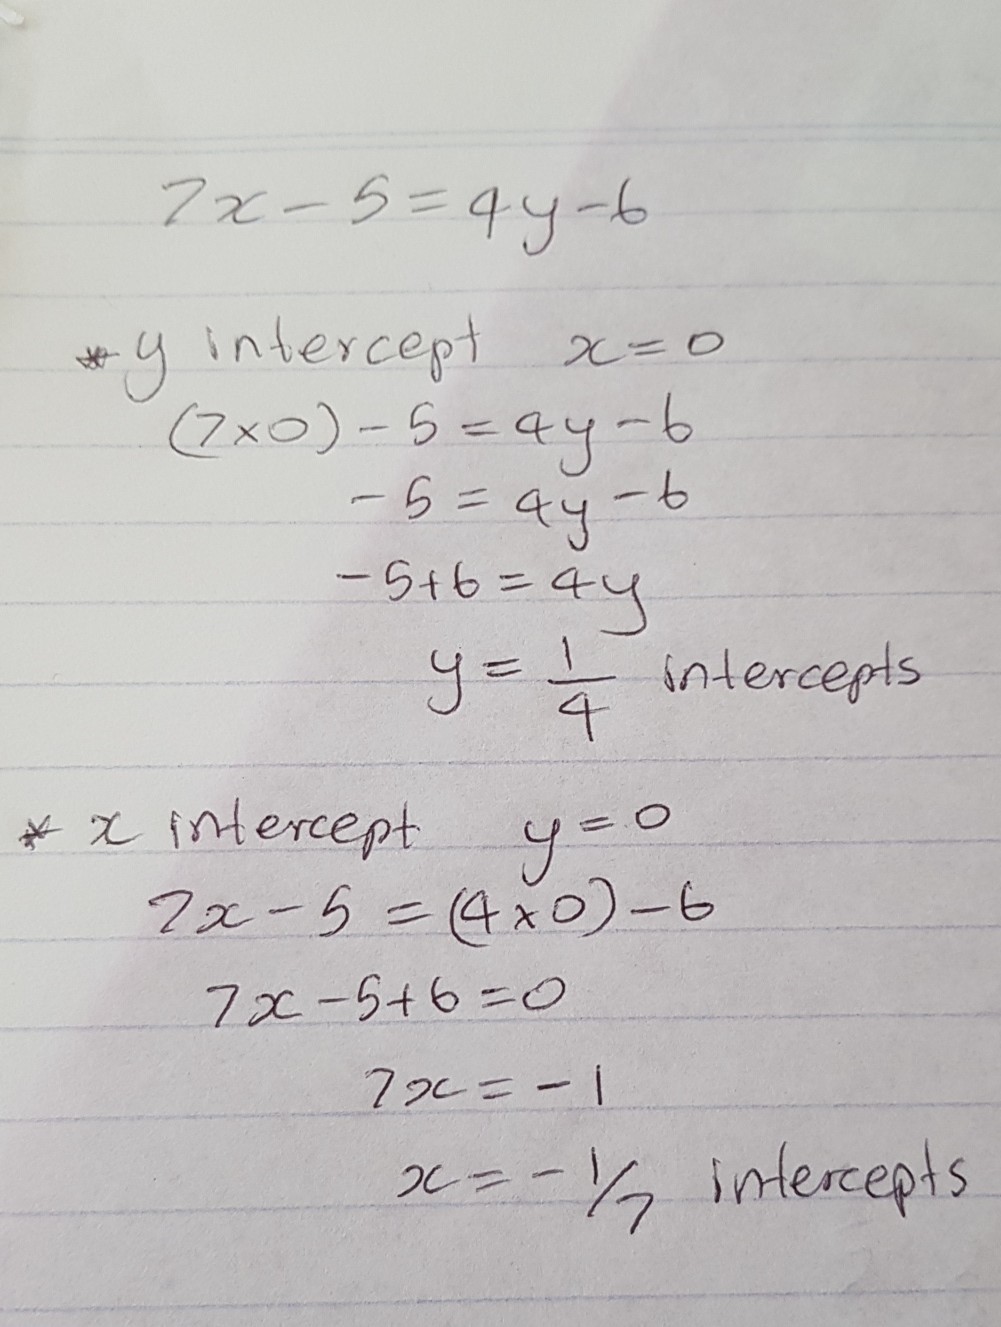 7x - 5 = 4y - 6
* y intercept x = 0
(7×0) - 5 = 4y - 6
- 5 = 4y - 6
- 5 + 6 = 4y
y = 1/4 intercepts
* x intercept y = 0
7x - 5 = (4×0) - 6
7x - 5 + 6 = 0
7x = - 1
x = - 1/7 intercepts